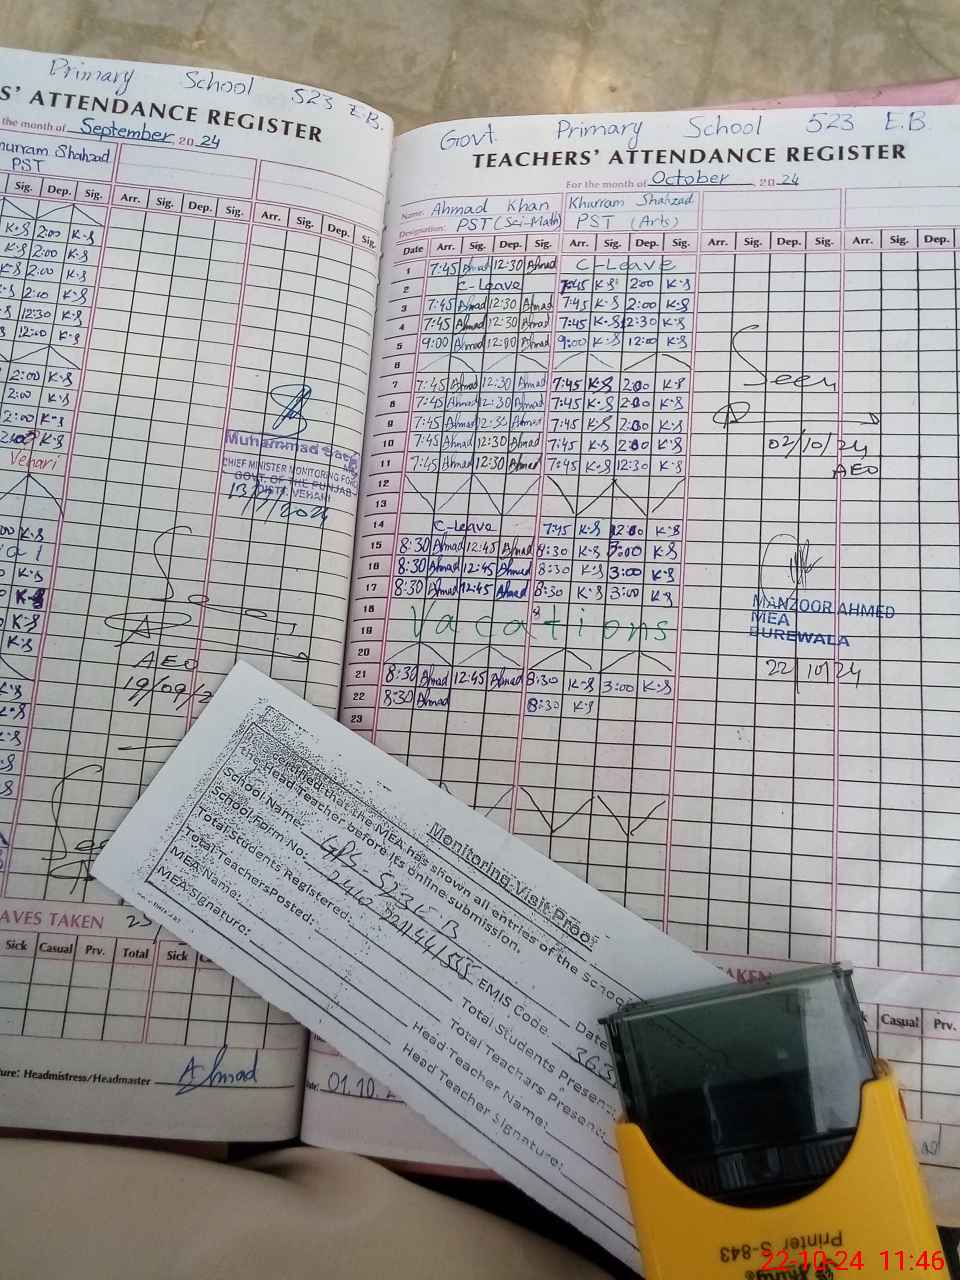 Primary School 523 E.B.
S' ATTENDANCE REGISTER
the month of September, 20 24
hurram Shahzad
PST
Sig. Dep. Sig. Arr. Sig. Dep. Sig. Arr. Sig. Dep. Sig.
K-S 2:00 K-S
K-S 2:00 K-S
K-S 2:00 K-S
2:10 K-S
12:30 K-S
12:00 K-S
2:00 K-S
2:00 K-S
2:00 K-S
K-S
Vehari
Muhammad
CHIEF MINISTER MONITORING FORCE
GOVT. OF THE PUNJAB
DISTT. VEHARI
AEO
19/09/2
AVES TAKEN
Sick Casual Prv. Total Sick
ure: Headmistress/Headmaster Ahmad
Govt. Primary School 523 E.B.
TEACHERS' ATTENDANCE REGISTER
For the month of October, 20 24
Name: Ahmad Khan Khurram Shahzad
Designation: PST (Sci-Math) PST (Arts)
Date Arr. Sig. Dep. Sig. Arr. Sig. Dep. Sig. Arr. Sig. Dep. Sig. Arr. Sig. Dep.
1 7:45 Ahmad 12:30 Ahmad C-Leave
2 C-Leave 7:45 K-S 2:00 K-S
3 7:45 Ahmad 12:30 Ahmad 7:45 K-S 2:00 K-S
4 7:45 Ahmad 12:30 Ahmad 7:45 K-S 12:30 K-S
5 9:00 Ahmad 12:00 Ahmad 9:00 K-S 12:00 K-S
6
7 7:45 Ahmad 12:30 Ahmad 7:45 K-S 2:00 K-S
8 7:45 Ahmad 12:30 Ahmad 7:45 K-S 2:00 K-S
9 7:45 Ahmad 12:30 Ahmad 7:45 K-S 2:00 K-S
10 7:45 Ahmad 12:30 Ahmad 7:45 K-S 2:00 K-S
11 7:45 Ahmad 12:30 Ahmad 7:45 K-S 12:30 K-S
12
13
14 C-Leave 7:45 K-S K-S
15 8:30 Ahmad 12:45 Ahmad 8:30 K-S 3:00 K-S
16 8:30 Ahmad 12:45 Ahmad 8:30 K-S 3:00 K-S
17 8:30 Ahmad 12:45 Ahmad 8:30 K-S 3:00 K-S
18
19 Vacations
20
21 8:30 Ahmad 12:45 Ahmad 8:30 K-S 3:00 K-S
22 8:30 Ahmad 8:30 K-S
23
Seen
02/10/24
AEO
MANZOOR AHMED
MEA
BUREWALA
22/10/24
TAKEN
Casual Prv.
01.10.
Monitoring Visit Proof
certified that the MEA has shown all entries of the School
the Head Teacher before its online submission.
School Name: GPS 523 E B Date
School Form No: EMIS Code 363
Total Students Registered: Total Students Present:
Total Teachers Posted: Total Teachers Present:
MEA Name: Head Teacher Name:
MEA Signature: Head Teacher Signature:
Printer S-843
22-10-24 11:46